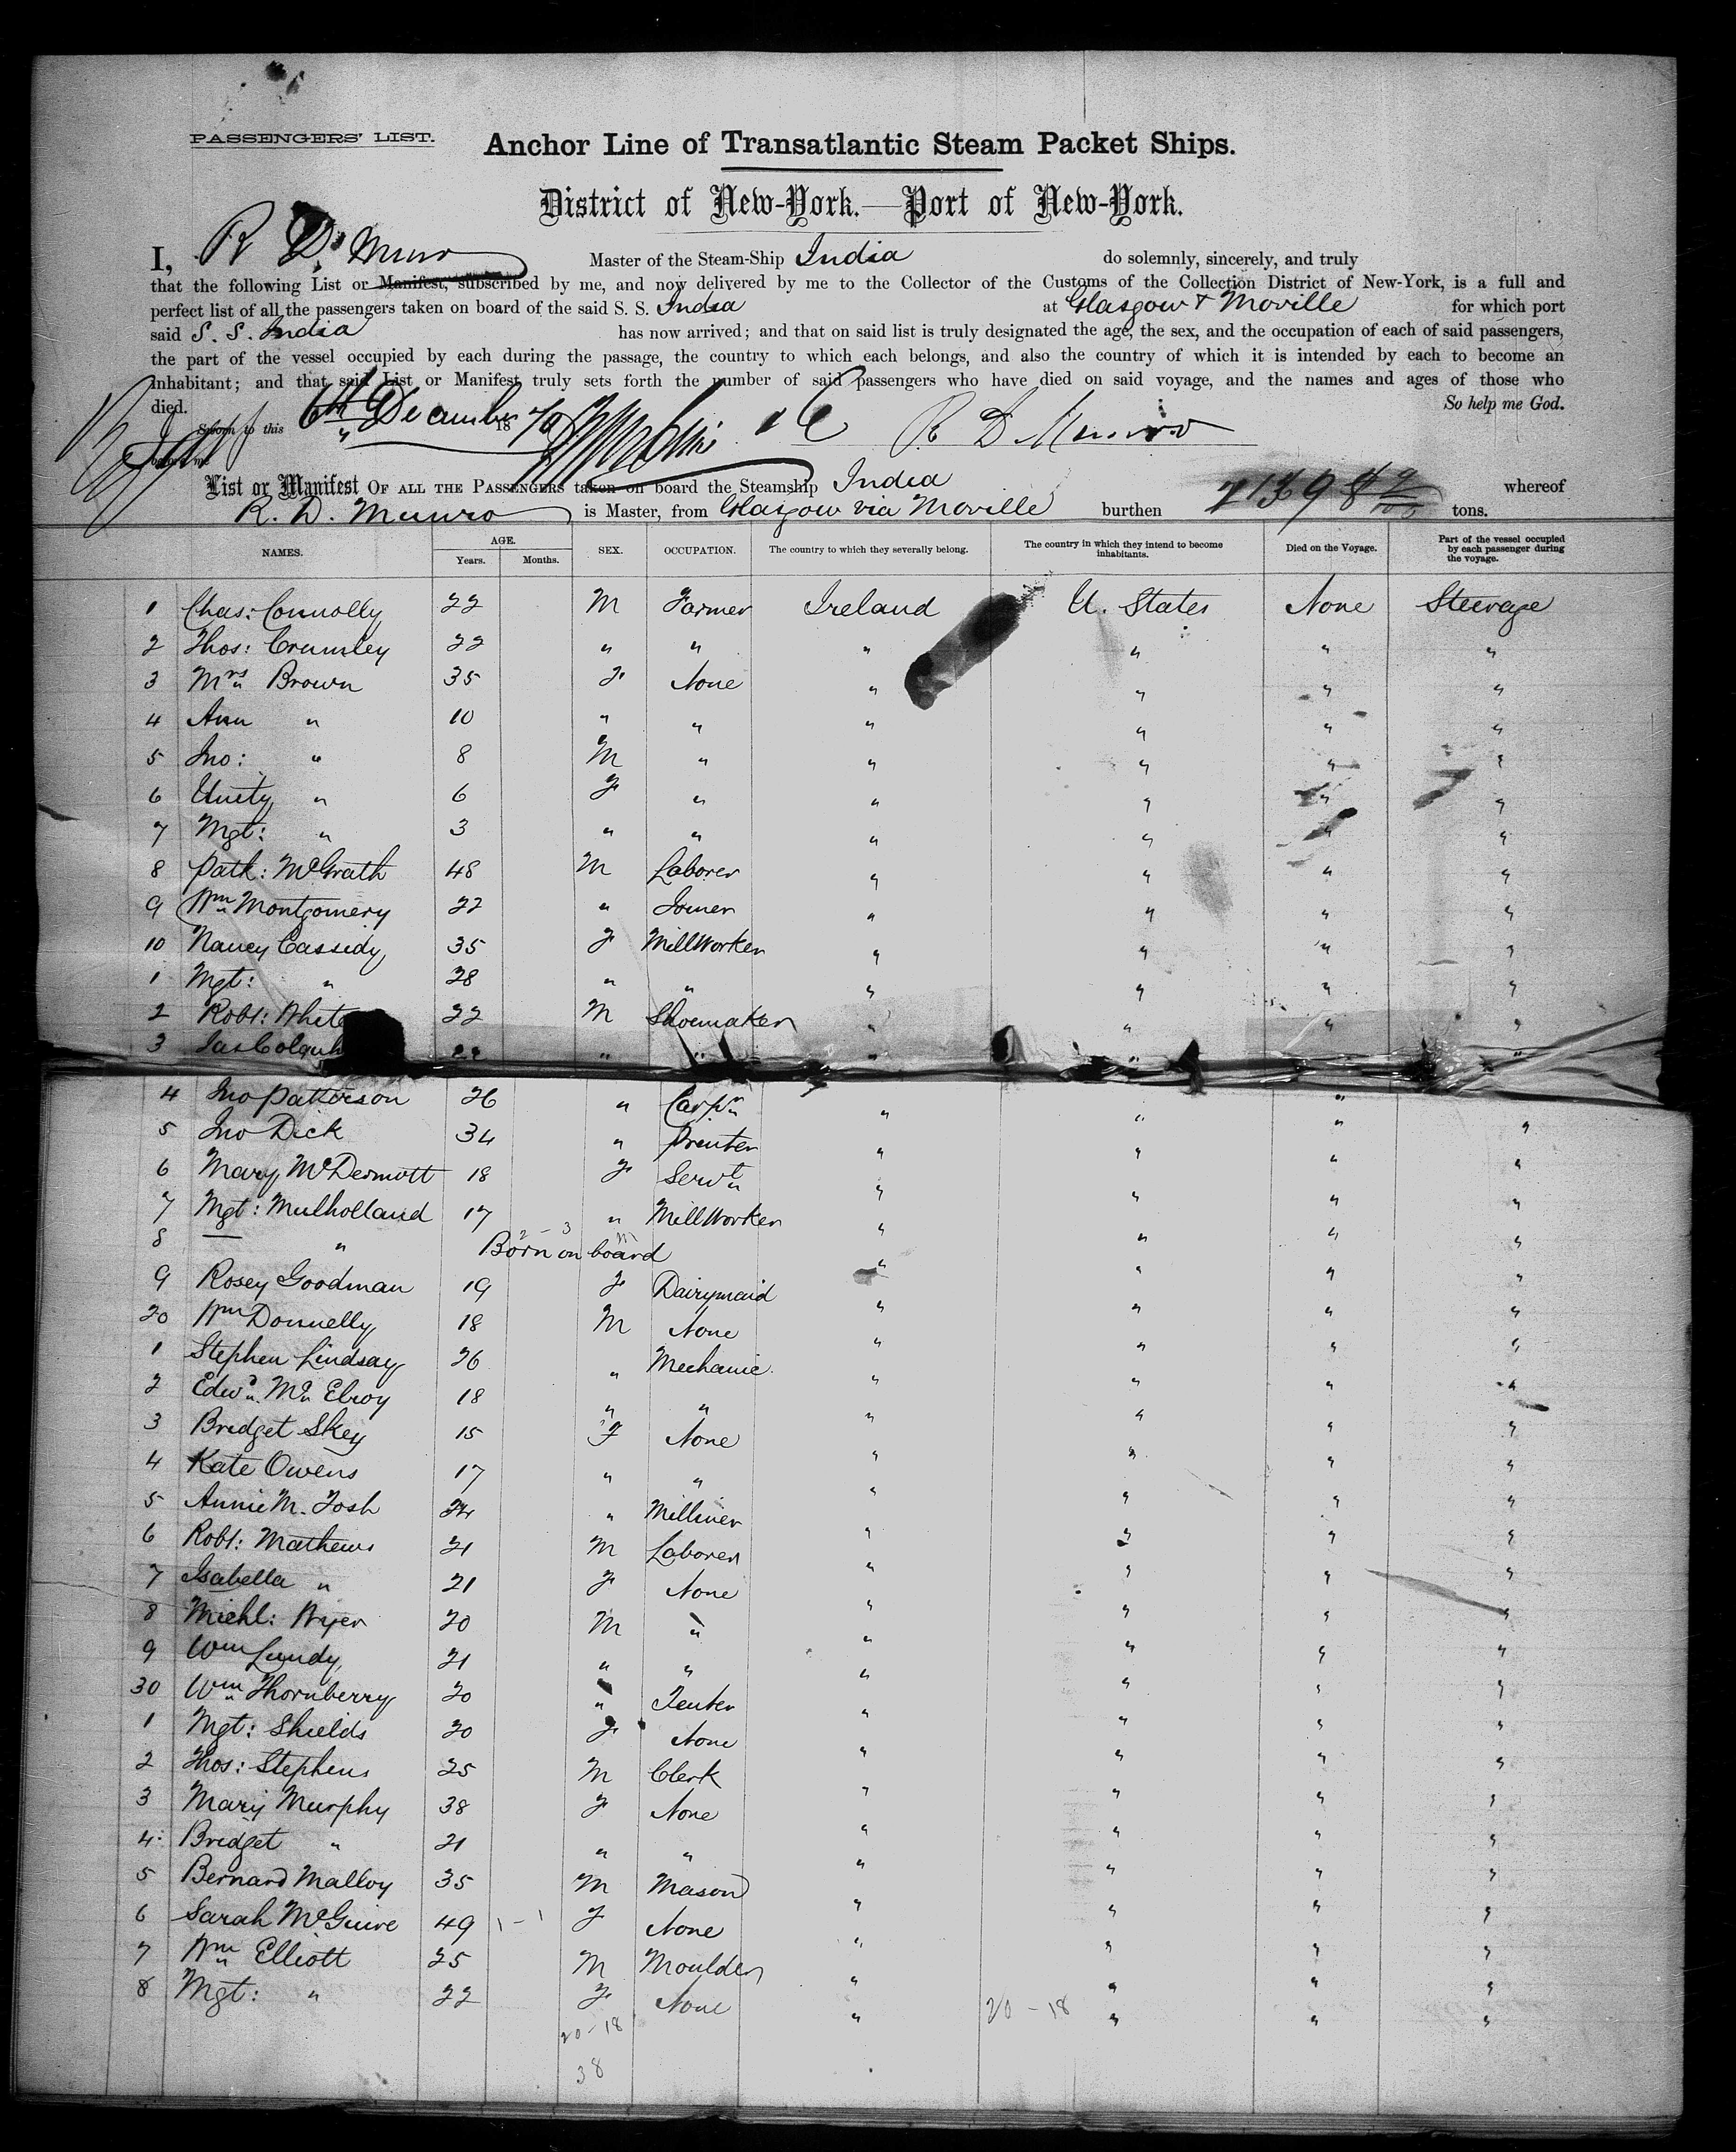 PASSENGERS' LIST.
Anchor Line of Transatlantic Steam Packet Ships.
District of New-York.—Port of New-York.
I, R. D. Munro Master of the Steam-Ship India do solemnly, sincerely, and truly
that the following List or Manifest, subscribed by me, and now delivered by me to the Collector of the Customs of the Collection District of New-York, is a full and
perfect list of all the passengers taken on board of the said S. S. India at Glasgow & Moville for which port
said S. S. India has now arrived; and that on said list is truly designated the age, the sex, and the occupation of each of said passengers,
the part of the vessel occupied by each during the passage, the country to which each belongs, and also the country of which it is intended by each to become an
inhabitant; and that said List or Manifest truly sets forth the number of said passengers who have died on said voyage, and the names and ages of those who
died. So help me God.
Sworn to this 6th December 1870 R. D. Munro
before me
List or Manifest OF ALL THE PASSENGERS taken on board the Steamship India whereof
R. D. Munro is Master, from Glasgow via Moville burthen tons.
NAMES. AGE. Years. Months. SEX. OCCUPATION. The country to which they severally belong. The country in which they intend to become inhabitants. Died on the Voyage. Part of the vessel occupied by each passenger during the voyage.
1 Chas: Connolly 22 M Farmer Ireland U. States None Steerage
2 Thos: Crumley 22 " " " " " "
3 Mrs Brown 35 F None " " " "
4 Ann " 10 " " " " " "
5 Jno: " 8 M " " " " "
6 Unity " 6 F " " " " "
7 Mgt: " 3 " " " " " "
8 Patk: McGrath 48 M Laborer " " " "
9 Wm Montgomery 22 " Joiner " " " "
10 Nancy Cassidy 35 F Millworker " " " "
1 Mgt: " 28 " " " " " "
2 Robt: White 22 M Shoemaker " " " "
3 Jas Colquh " " " "
4 Jno Patterson 26 " Carpr " " " "
5 Jno Dick 34 " Printer " " " "
6 Mary McDermott 18 F Servt " " " "
7 Mgt: Mulholland 17 " Millworker " " " "
8 — " Born on board " " " "
9 Rosey Goodman 19 F Dairymaid " " " "
20 Wm Donnelly 18 M None " " " "
1 Stephen Lindsay 26 " Mechanic " " " "
2 Edwd McElroy 18 " " " " " "
3 Bridget Skey 15 F None " " " "
4 Kate Owens 17 " " " " " "
5 Annie M. Tosh 24 " Milliner " " " "
6 Robt: Mathews 21 M Laborer " " " "
7 Isabella " 21 F None " " " "
8 Michl: Wyer 20 M " " " " "
9 Wm Lundy 21 " " " " " "
30 Wm Thornberry 20 " Tenter " " " "
1 Mgt: Shields 20 F None " " " "
2 Thos: Stephens 25 M Clerk " " " "
3 Mary Murphy 38 F None " " " "
4 Bridget " 21 " " " " " "
5 Bernard Malloy 35 M Mason " " " "
6 Sarah McGuire 49 1-1 F None " " " "
7 Wm Elliott 25 M Moulder " " " "
8 Mgt: " 22 F None " " " "
20-18 20-18
38